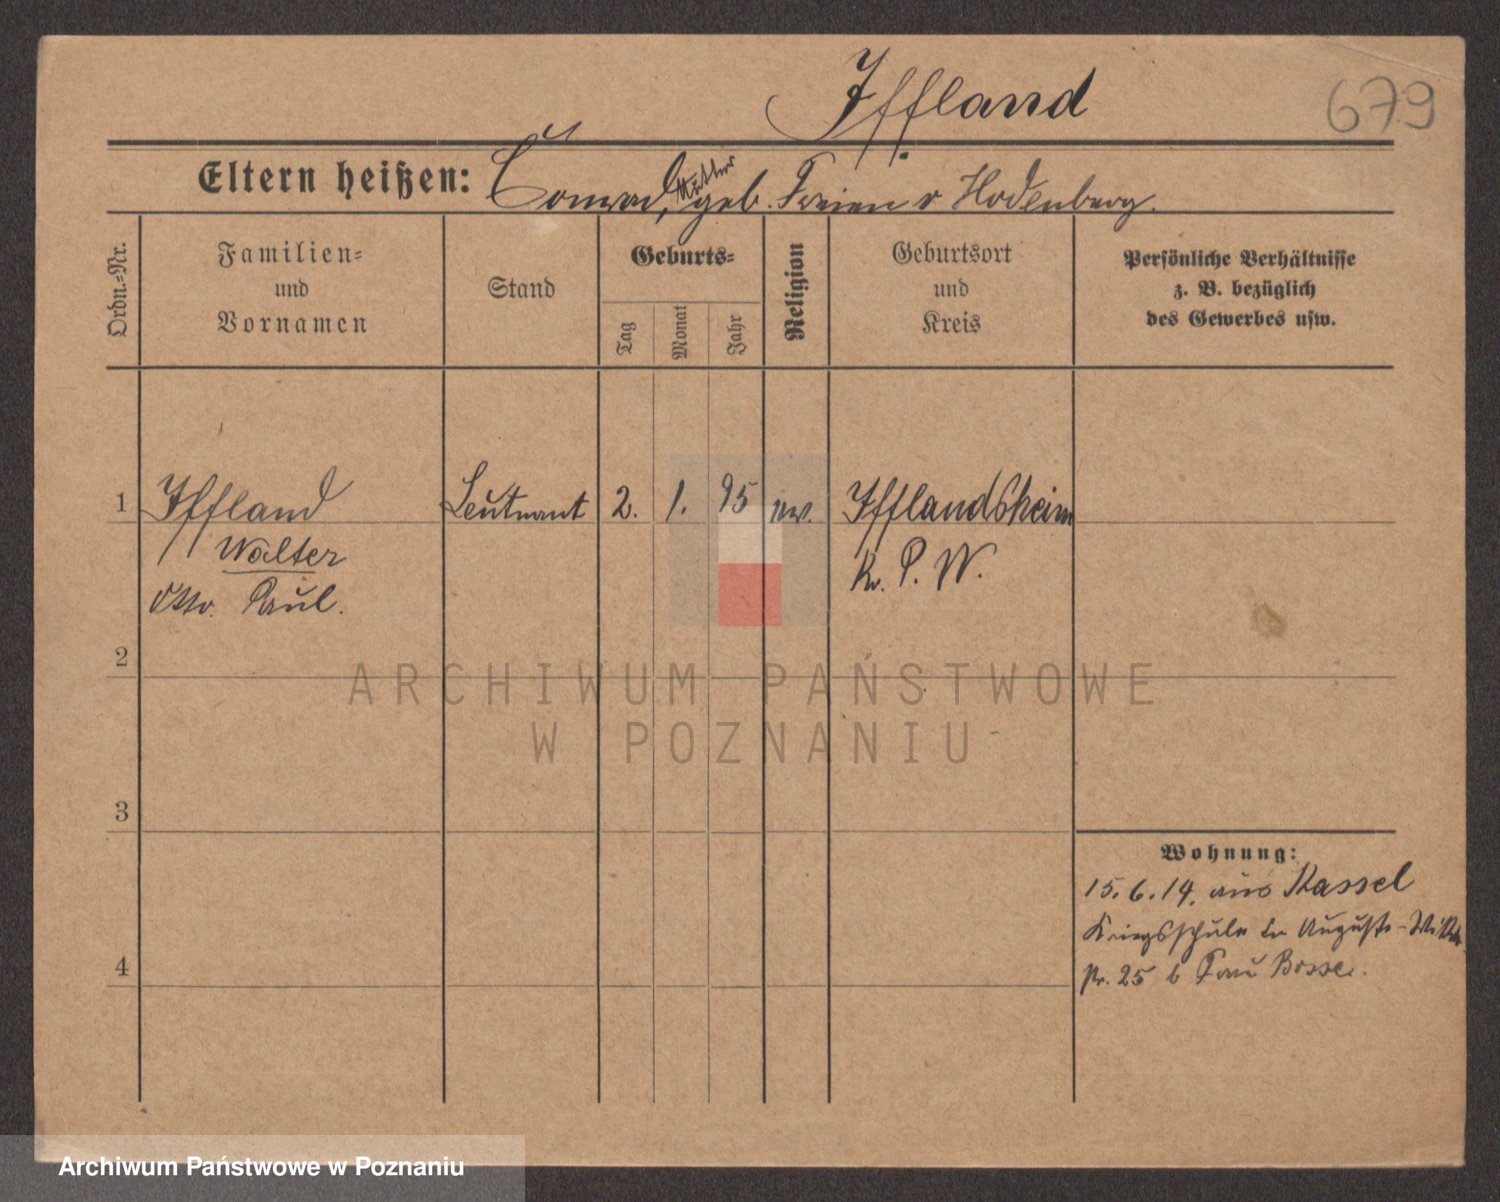 Iffland
679
Eltern heißen: Conrad, Mutter geb. Freien v Hodenberg.
Ordn.-Nr.
Familien-
und
Vornamen
Stand
Geburts-
Tag
Monat
Jahr
Religion
Geburtsort
und
Kreis
Persönliche Verhältnisse
z. B. bezüglich
des Gewerbes usw.
1 Iffland Leutnant 2. 1. 95 ev. Ifflandsheim
Walter Kr. P. W.
Otto Paul.
2
ARCHIWUM PAŃSTWOWE
W POZNANIU
3
Wohnung:
15.6.14. aus Kassel
Kriegsschule Auguste-Vikt.
4
25 b Frau Bosse.
Archiwum Państwowe w Poznaniu